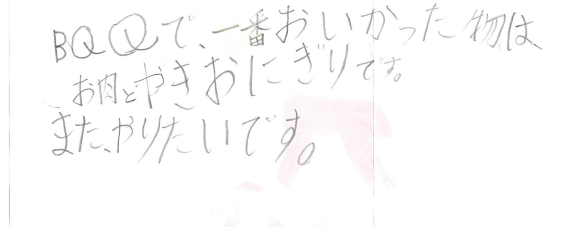 BQQで、一番おいかった物は、
お肉とやきおにぎりです。
また、やりたいです。